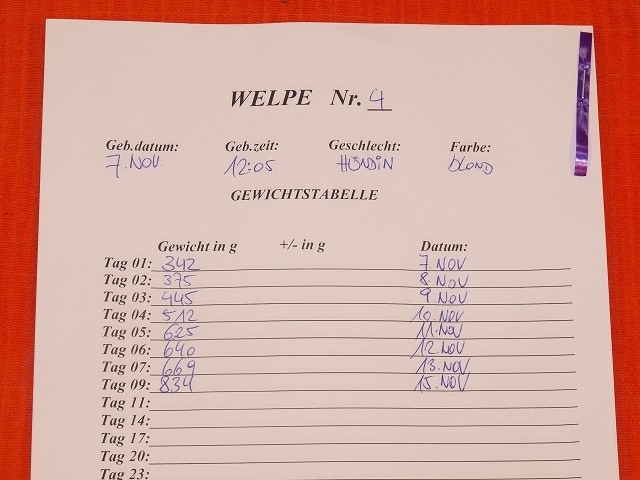 WELPE Nr. 4
Geb.datum: Geb.zeit: Geschlecht: Farbe:
7. NOV. 12:05 HÜNDIN blOND
GEWICHTSTABELLE
Gewicht in g +/- in g Datum:
Tag 01: 342 7. NOV
Tag 02: 375 8. NOV
Tag 03: 445 9. NOV
Tag 04: 512 10. NOV
Tag 05: 625 11. NOV
Tag 06: 640 12. NOV
Tag 07: 669 13. NOV
Tag 09: 834 15. NOV
Tag 11:
Tag 14:
Tag 17:
Tag 20:
Tag 23: